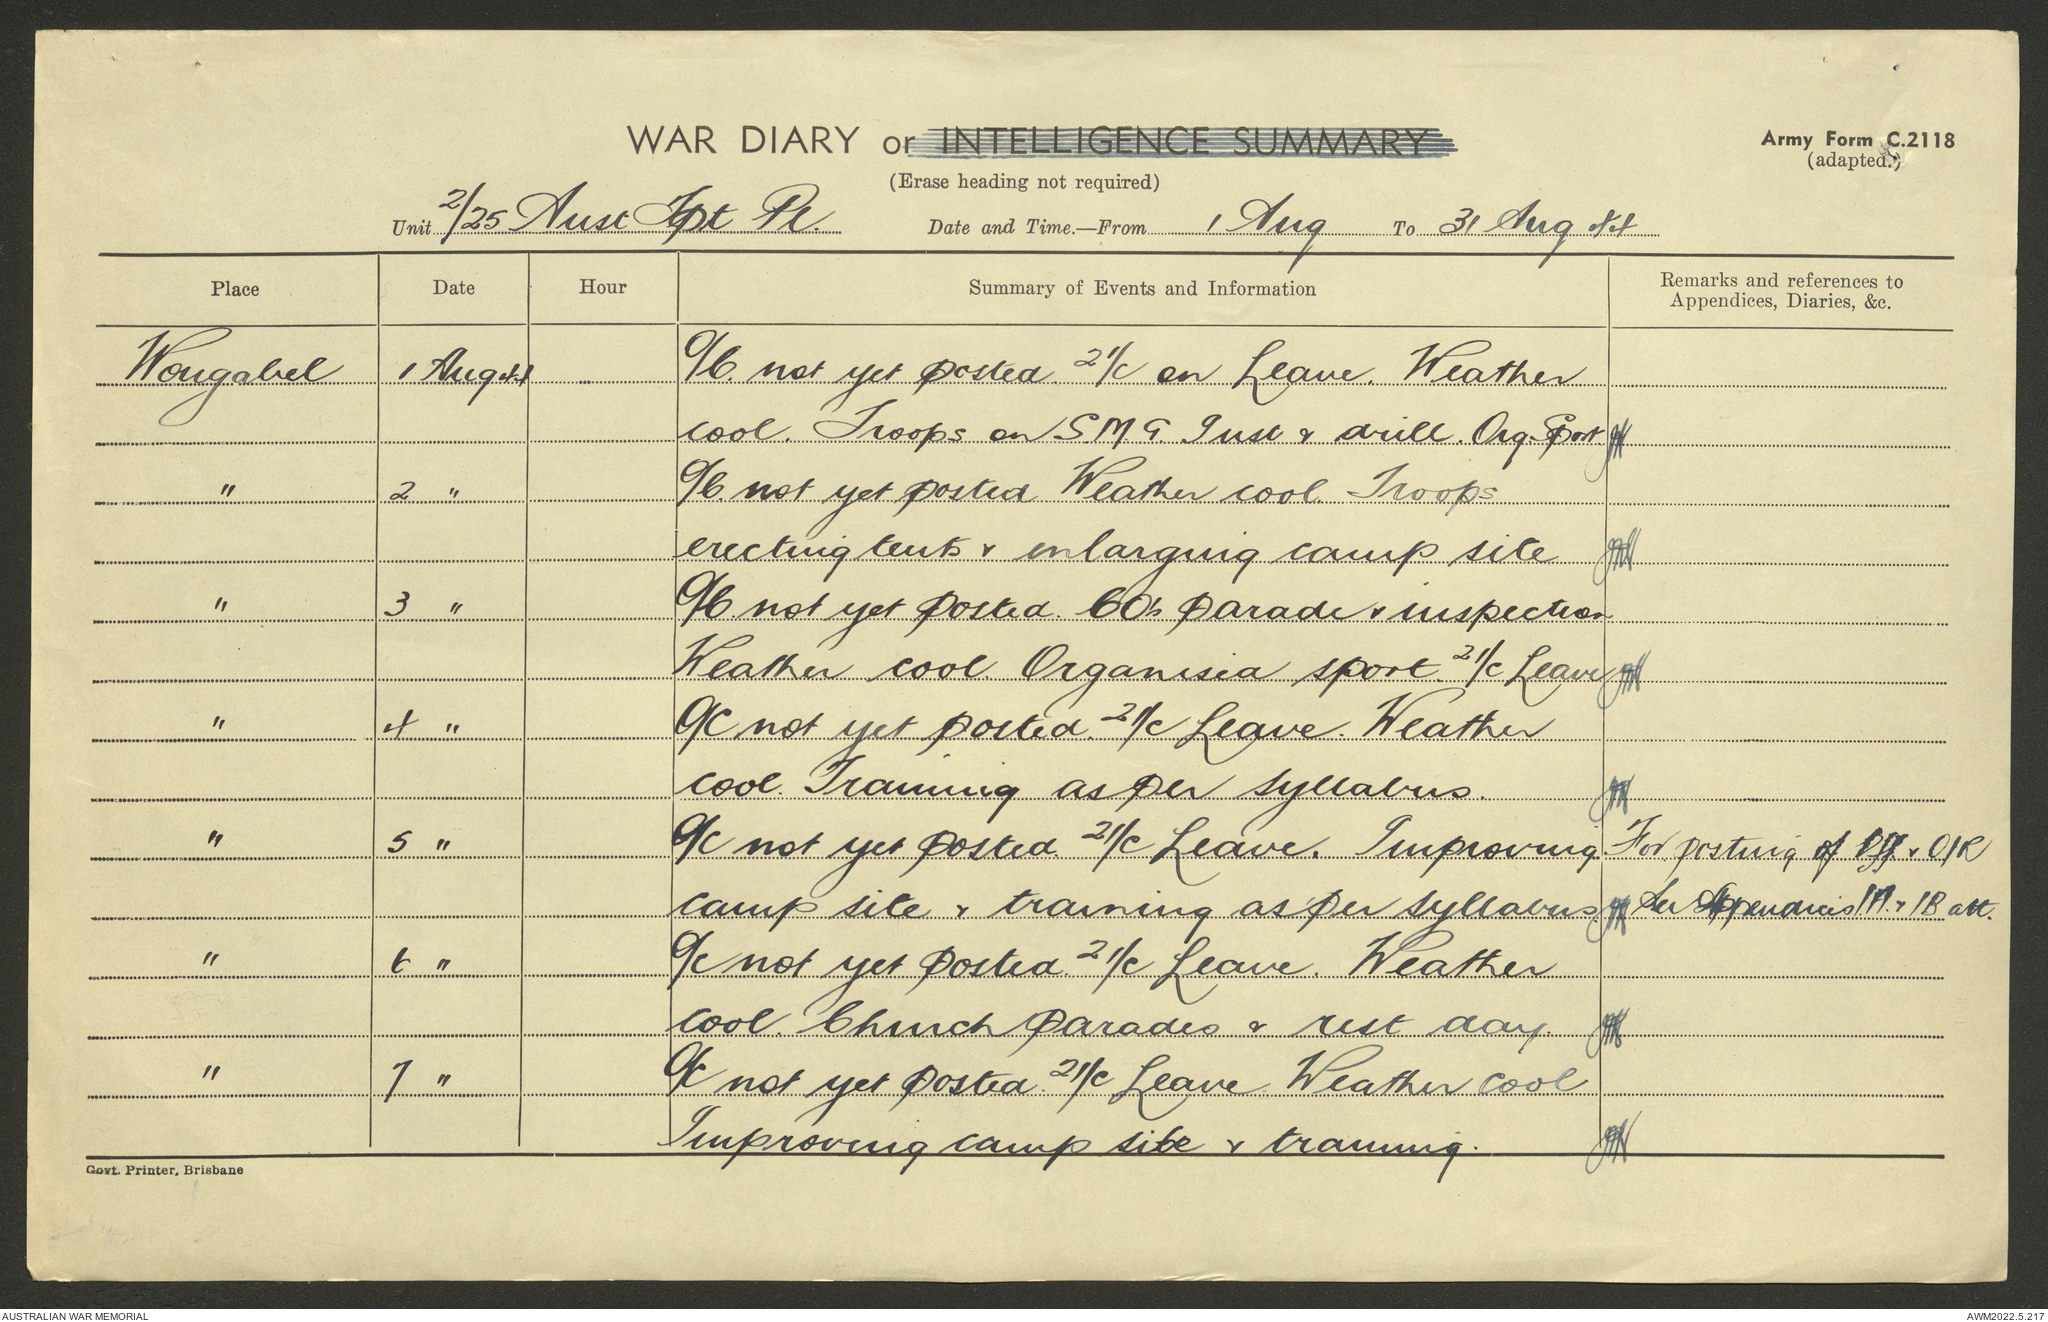 WAR DIARY or INTELLIGENCE SUMMARY
Army Form C.2118
(adapted.)
(Erase heading not required)
Unit 2/25 Aust Tpt Pl. Date and Time.—From 1 Aug To 31 Aug 44
Place Date Hour Summary of Events and Information Remarks and references to Appendices, Diaries, &c.
Wongabel 1 Aug 44 O/C. not yet posted. 2I/C on Leave. Weather
cool. Troops on SMG Inst & drill. Org. Sport.
" 2 " O/C. not yet posted Weather cool. Troops
erecting tents & enlarging camp site
" 3 " O/C. not yet posted. CO's parade & inspection
Weather cool. Organised sport. 2I/C Leave
" 4 " O/C. not yet posted. 2I/C Leave. Weather
cool. Training as per syllabus.
" 5 " O/C not yet posted. 2I/C Leave. Improving For posting of Off & O/R
camp site & training as per syllabus. See Appendices 1A & 1B att.
" 6 " O/C not yet posted. 2I/C Leave. Weather
cool. Church Parades & rest day.
" 7 " O/C not yet posted. 2I/C Leave. Weather cool
Improving camp site & training.
Govt. Printer, Brisbane
AUSTRALIAN WAR MEMORIAL
AWM2022.5.217